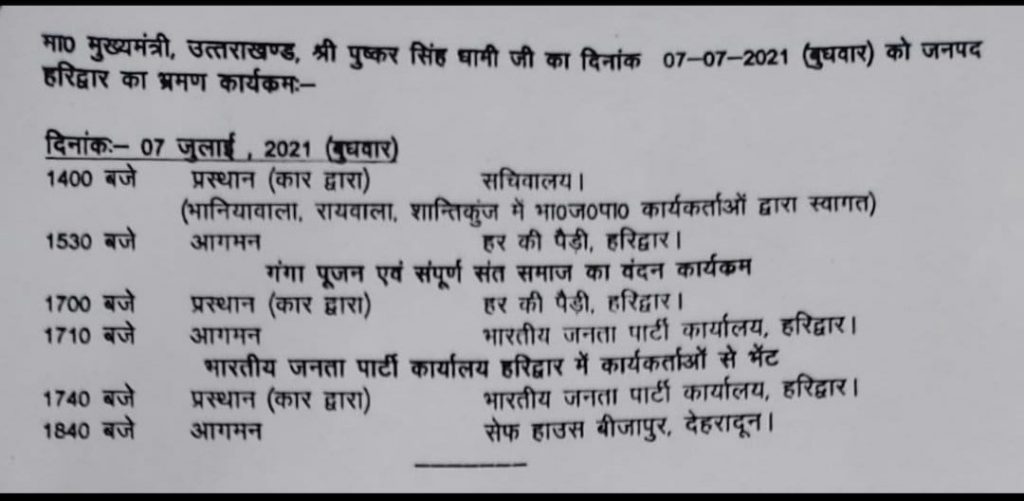 मा0 मुख्यमंत्री, उत्तराखण्ड, श्री पुष्कर सिंह धामी जी का दिनांक 07-07-2021 (बुधवार) को जनपद
हरिद्वार का भ्रमण कार्यकमः-
दिनांकः- 07 जुलाई , 2021 (बुधवार)
1400 बजे प्रस्थान (कार द्वारा) सचिवालय।
(भानियावाला, रायवाला, शान्तिकुंज में भा0ज0पा0 कार्यकर्ताओं द्वारा स्वागत)
1530 बजे आगमन हर की पैड़ी, हरिद्वार।
गंगा पूजन एवं संपूर्ण संत समाज का वंदन कार्यकम
1700 बजे प्रस्थान (कार द्वारा) हर की पैड़ी, हरिद्वार।
1710 बजे आगमन भारतीय जनता पार्टी कार्यालय, हरिद्वार।
भारतीय जनता पार्टी कार्यालय हरिद्वार में कार्यकर्ताओं से भेंट
1740 बजे प्रस्थान (कार द्वारा) भारतीय जनता पार्टी कार्यालय, हरिद्वार।
1840 बजे आगमन सेफ हाउस बीजापुर, देहरादून।